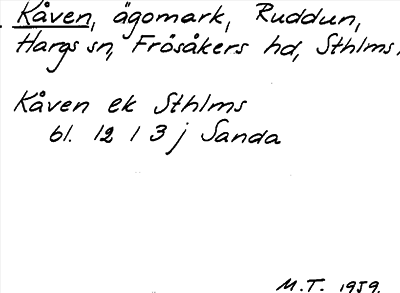 Kåven, ägomark, Ruddun,
Hargs sn, Frösåkers hd, Sthlms.
Kåven ek Sthlms
bl. 12 1 3 j Sanda
M.T. 1959.